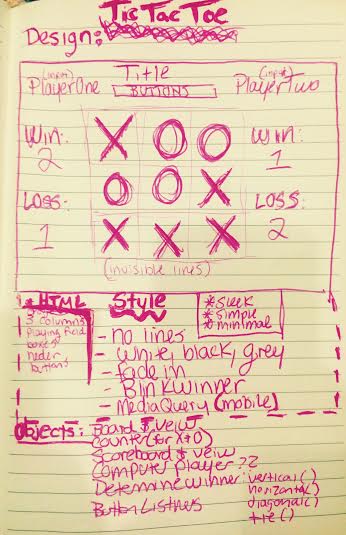 Tic Tac Toe
Design:
(input) Title (input)
Player One BUTTONS Player Two
WIN: X O O WIN:
2 1
LOSS: O O X LOSS:
1 X X X 2
(invisible lines)
* HTML
3 columns
playing field
boxes
heder
buttons
Style
* sleek
* simple
* minimal
- no lines
- white, black, grey
- fade in
- Blink winner
- Media Query (mobile)
Objects: Board & veiw
counter (for X & O)
Scoreboard & veiw
Computer player ??
Determine winner: vertical()
horizontal()
diagonal()
tie()
Button Listners